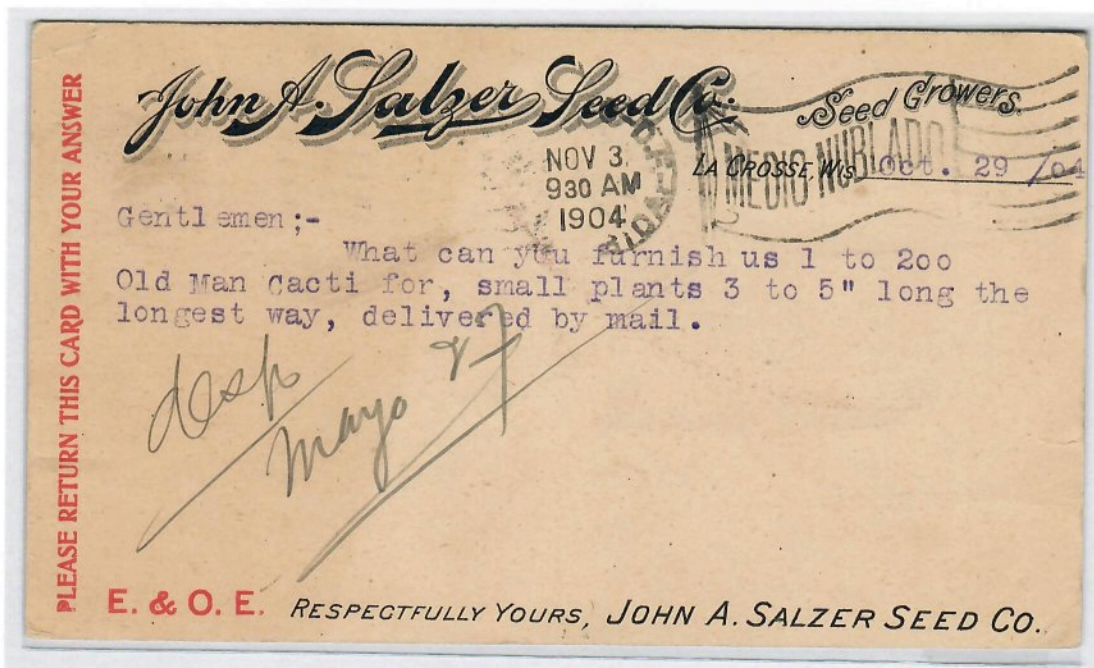 PLEASE RETURN THIS CARD WITH YOUR ANSWER
John A. Salzer Seed Co.
Seed Growers.
NOV 3
930 AM
1904
MEDIO NUBLADO
LA CROSSE, WIS. Oct. 29 /04
Gentlemen;-
What can yuu furnish us 1 to 2oo
Old Man Cacti for, small plants 3 to 5" long the
longest way, delivered by mail.
desp
Mayo 27
E. & O. E. RESPECTFULLY YOURS, JOHN A. SALZER SEED CO.